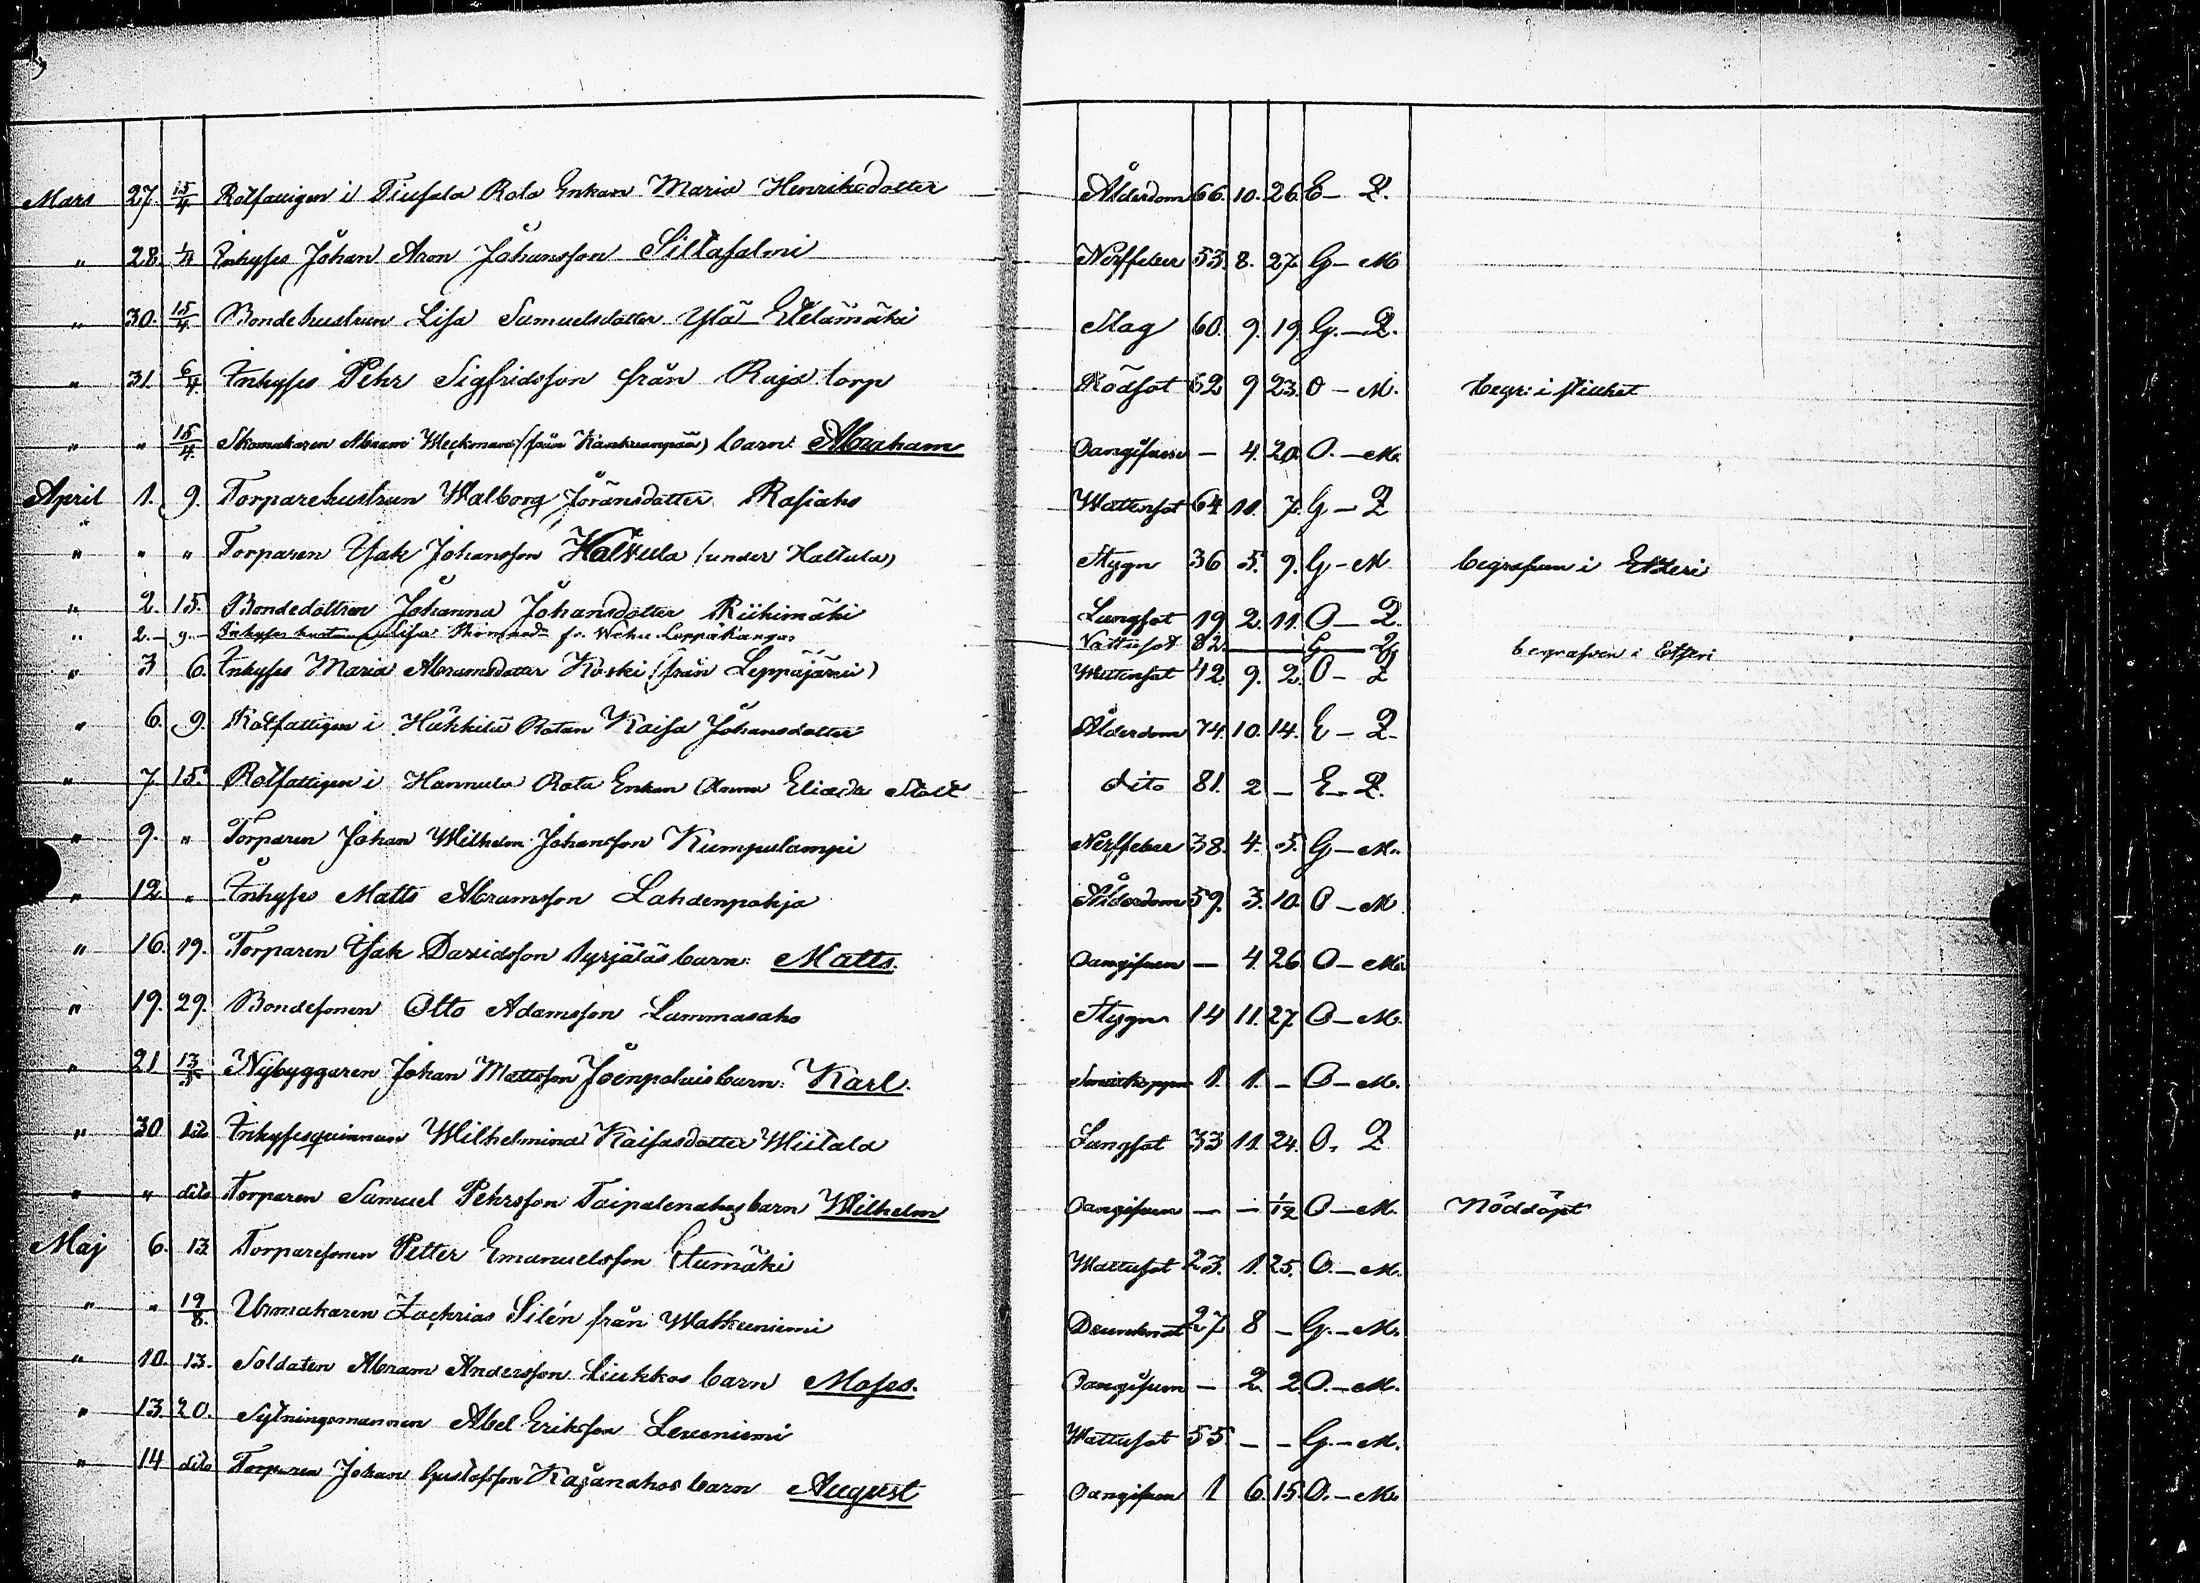 Mars 27. 15/4 Rotfattigen i Rota Enkan Maria Henriksdotter Ålderdom 66. 10. 26. E — Q.
" 28. 1/4 Inhyses Johan Aron Johansson Siltasalmi Nerffeber 53. 8. 27. G — M
" 30. 15/4 Bondehustrun Lisa Samuelsdotter Ylä Etelämäki Slag 60. 9. 19. G. — Q.
" 31. 6/4. Inhyses Pehr Sigfridsson från Raja torp Rödsot 62 9 23. O — M. begr: i
" " 15/4. Skomakaren Abram (från ) barn: Abraham Oangifven — 4. 20. O. — M.
April 1. 9. Torparehustrun Walborg Jöransdotter Rasiaho Wattusot 64 11. 7. G — Q
" " " Torparen Isak Johansson Hallula (under Hallula) Stygn 36 5. 9. G — M begrafven i Etseri
" 2. 15. Bondedottren Johanna Johansdotter Riihimäki Lungsot 19 2. 11. O — Q.
" 2. — 9. — Inhyses hustrun Lisa fr. Leppäkangas Vattusot 82. — G — Q begrafven i Etseri
" 3 6. Inhyses Maria Abramsdotter Koski (från Leppäjärvi) Wattusot 42. 9. 2. O — Q
" 6. 9. Rotfattigen i Häkkilä Rotan Kaisa Johansdotter Ålderdom 74. 10. 14. E — Q.
" 7. 15. Rotfattigen i Hannula Rota Enkan Anna Eliaed: Stolt dito 81. 2 — E — Q.
" 9. " Torparen Johan Wilhelm Johansson Kumpulampi Nerffeber 38. 4. 5. G — M.
" 12. " Inhyses Matts Abramsson Lahdenpohja Ålderdom 59. 3. 10. O — M
" 16. 19. Torparen Isak Davidsson Syrjäläs barn: Matts. Oangifven — 4. 26 O — M.
" 19. 29. Bondesonen Otto Adamsson Lammasaho Stygn 14 11. 27 O — M.
" 21 13/5 Nybyggaren Johan Mattsson Joenpoluis barn: Karl. Smittkoppor 1. 1. — O — M.
" 30 dito Inhysesqvinnan Wilhelmina Kaisasdotter Wiitala Lungsot 33 11. 24. O. Q
" " dito Torparen Samuel Pehrsson Taipalenahos barn Wilhelm Oangifven — — 1/12 O — M. Nöddöpt
Maj 6. 13. Torparesonen Petter Emanuelsson Etumäki Wattusot 23. 1. 25. O. — M.
" " 19/8. Urmakaren Zachrias Silén från Watkuniemi Drunknat 27 8 — G. — M.
" 10. 13. Soldaten Abram Andersson Liukkos barn Moses. Oangifven — 2. 2. O. — M.
" 13. 20. Sytningsmannen Abel Eriksson Leveniemi Wattusot 55. — — G. — M.
" 14 dito Torparen Johan Gustafsson Kasanahos barn August Oangifven 1 6. 15. O. — M.